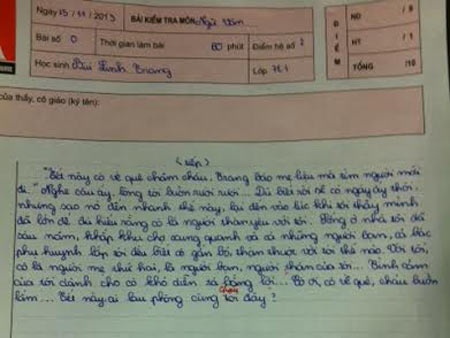 Ngày 15 / 11 / 2013 BÀI KIỂM TRA MÔN: Ngữ Văn
Bài số 0 Thời gian làm bài 60 phút Điểm hệ số 2
Học sinh Bùi Linh Trang Lớp 7E1
ĐIỂM
ND / 9
HT / 1
TỔNG /10
của thầy, cô giáo (ký tên):
(tiếp)
"Tết này cô về quê chăm cháu, Trang bảo mẹ liệu mà tìm người mới
đi." Nghe câu ấy, lòng tôi buồn rười rượi... Dù biết rồi sẽ có ngày ấy thôi,
nhưng sao nó đến nhanh thế này, lại đến vào lúc khi tôi thấy mình
đã lớn để đủ hiểu rằng cô là người thân yêu với tôi. Sống ở nhà tôi đã
sáu năm, khắp khu chợ xung quanh và cả những người bạn, cả bác
phụ huynh lớp tôi đều biết cô gắn bó, thân thuộc với tôi thế nào. Với tôi,
cô là người mẹ thứ hai, là người bạn, người thân của tôi... Tình cảm
của tôi dành cho cô khó diễn tả bằng lời... Cô ơi, cô về quê, cháu buồn
lắm.... Tết này ai lau phòng cùng cháu tôi đây?